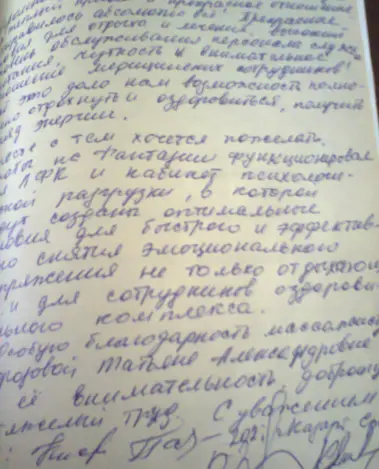 прекрасное отношение
нравилось абсолютно всё! Прекрасное
для отдыха и лечения, высокий
обслуживания персонала,
чуткость и внимательное
медицинских сотрудников!
это дало нам возможность полно-
отдохнуть и оздоровиться, получить
ряд энергии.
месте с тем хочется пожелать,
чтобы пс Фантазии функционировал
ЛФК и кабинет психологи-
ской разгрузки, в которой
дут созданы оптимальные
овия для быстрого и эффектив-
но снятия эмоционального
пряжения не только отдыхающ
и для сотрудников оздорови-
льного комплекса.
особую благодарность массажист
розовой Татьяне Александровне
её внимательность, доброту
тяжелый труд. С уважением